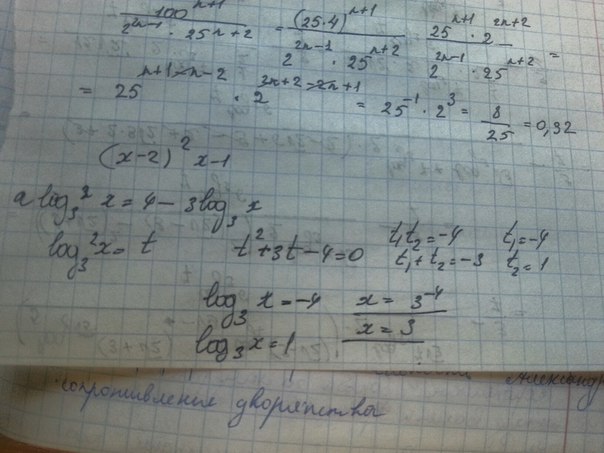 100^{n+1} / (2^{2n-1} · 25^{n+2}) = (25·4)^{n+1} / (2^{2n-1} · 25^{n+2}) = 25^{n+1} · 2^{2n+2} / (2^{2n-1} · 25^{n+2}) =
= 25^{n+1-n-2} · 2^{2n+2-2n+1} = 25^{-1} · 2^3 = 8/25 = 0,32
(x-2)^2 x-1
a log_3^2 x = 4 - 3 log_3 x
log_3^2 x = t   t^2+3t-4=0   t_1 t_2 = -4   t_1 = -4
t_1 + t_2 = -3   t_2 = 1
log_3 x = -4   x = 3^{-4}
log_3 x = 1   x = 3
Александр
сопротивления дворянства